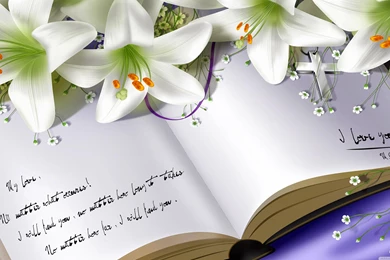 My love.
No matter what occurs!
I will find you, no matter how long it takes
No matter how far. I will find you.
I love you